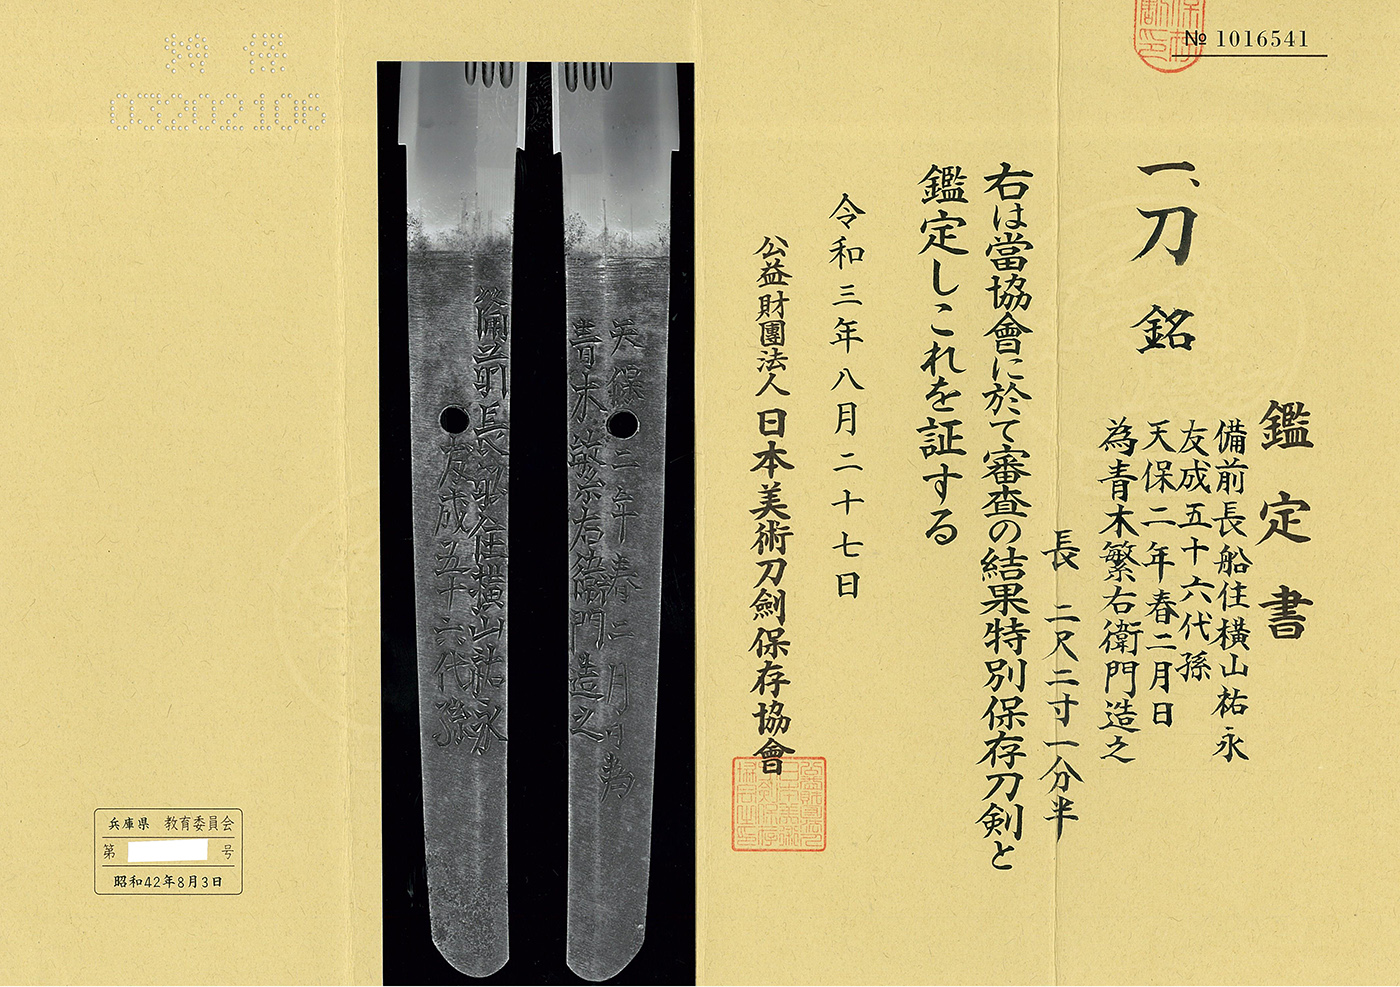 № 1016541
鑑定書
一、刀 銘
備前長船住横山祐永
友成五十六代孫
天保二年春二月日
為青木繁右衛門造之
長 二尺二寸一分半
右は當協會に於て審査の結果特別保存刀剣と
鑑定しこれを証する
令和三年八月二十七日
公益財團法人 日本美術刀劍保存協會
天保二年春二月日為
青木繁右衛門造之
備前長船住横山祐永
友成五十六代孫
特保
03202106
兵庫県 教育委員会
第 号
昭和42年8月3日